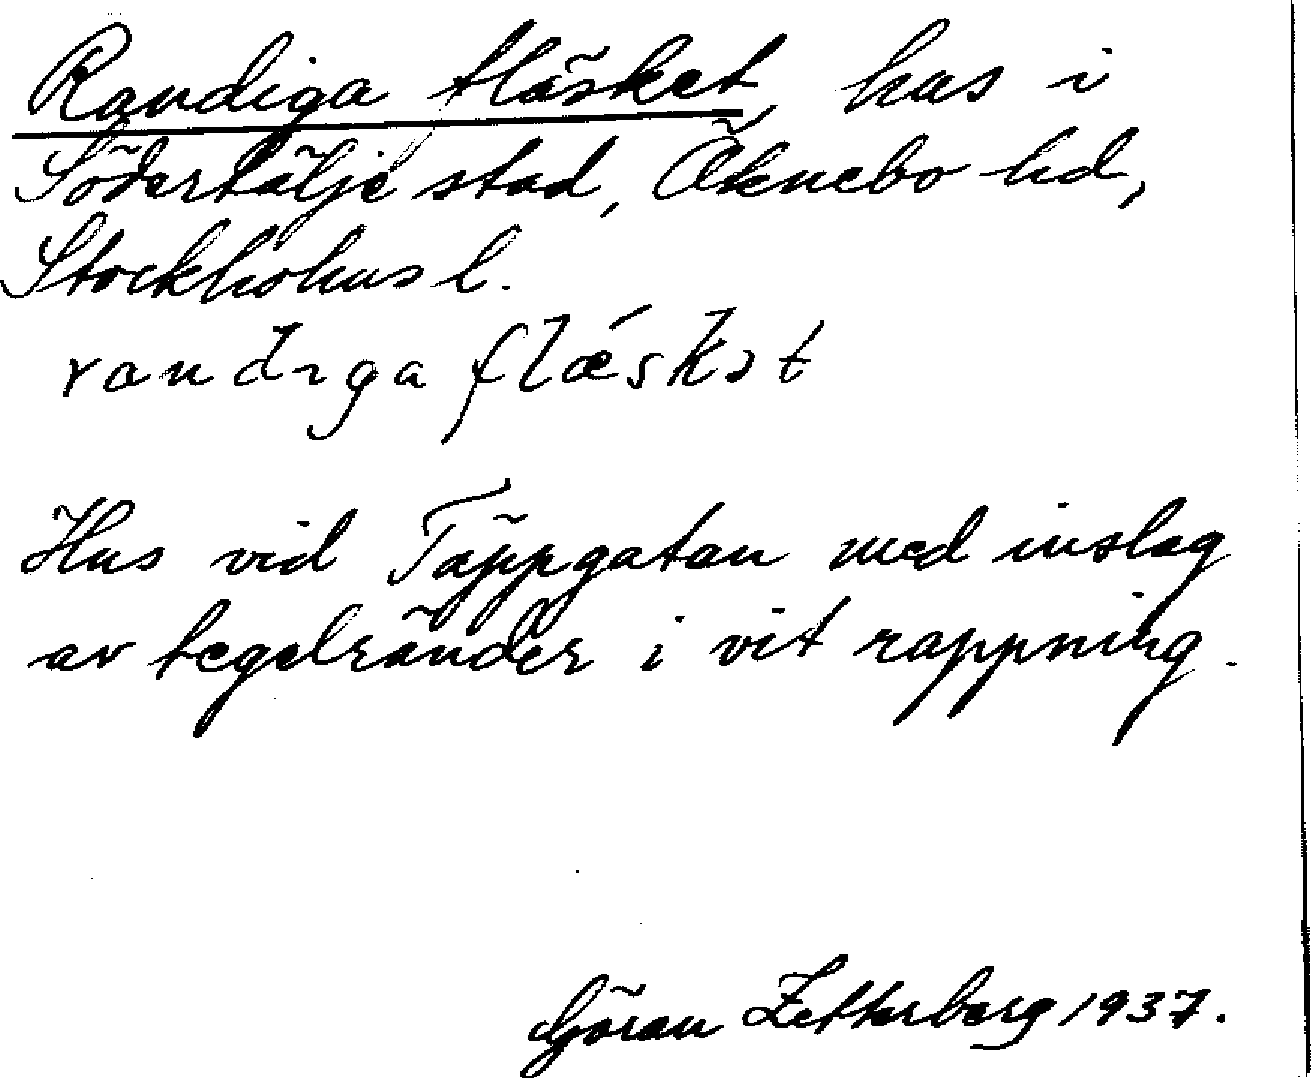 Randiga fläsket, hus i
Södertälje stad, Öknebo hd,
Stockholms l.
randıga flǽskət
Hus vid Täppgatan med inslag
av tegelränder i vit rappning.
Göran Zetterberg 1937.